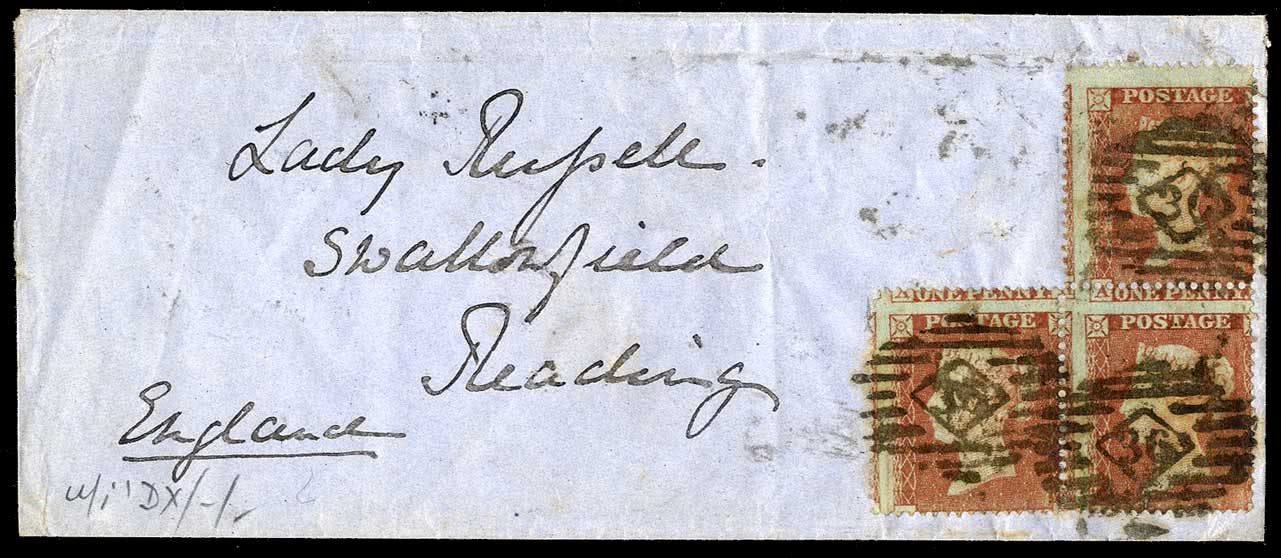 Lady Russell.
Swallowfield
Reading
England
POSTAGE
A ONE PENNY. A ONE PENNY.
POSTAGE POSTAGE